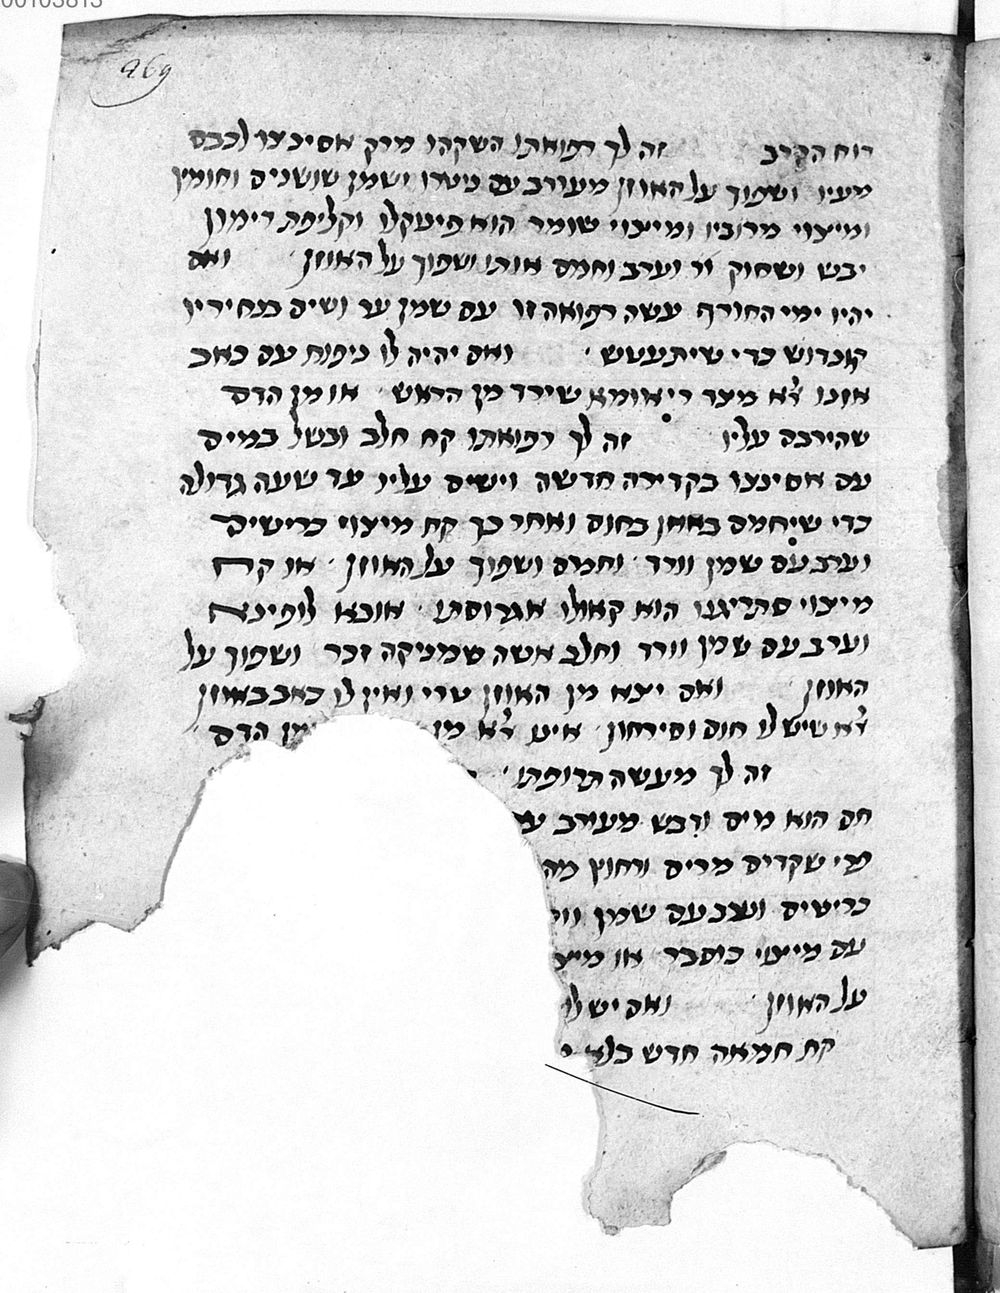 00103813
269
רוח הקרב זה לך רפואתו השקהו מרק אסינצו לכבס
מעיו ושפוך על האוזן מעורב עם ושמן שושנים וחומץ
ומיצוי מרוביו ומיצוי שומר הוא פינוקלו וקליפת רימון
יבש ושחוק וערב וחמם אותו ושפוך על האוזן ואם
יהיו ימי החורף עשה רפואה זו עם שמן ער ושים בנחיריו
קונדוש כדי שיתעטש ואם יהיה לו ניפוח עם כאב
אזנו מצד ריאומא שירד מן הראש או מן הדם
שהירבם עליו זה לך רפואתו קח חלב ובשל במים
עם אסינצו בקדירה חדשה וישים עליו עד שעה גדולה
כדי שיחמם באוזן בחום ואחר כך קח מיצוי כרישים
וערב עם שמן וורד וחמם ושפוך על האוזן או קח
מיצוי סתריגנו הוא קאולו אגרוסתו אוכא לופינא
וערב עם שמן וורד וחלב אשה שמניקה זכר ושפוך על
האוזן ואם יצא מן האוזן טרי ואין לו כאב באוזן
שיש לו חום וסירחון אינו מן מן הדם
זה לך מעשה תרופתו
חם הוא מים ודבש מעורב עם
מי שקדים מרים ורחוץ
כרישים וערב עם שמן
עם מיצוי כוסבר או
על האוזן ואם יש לו
קח חמאה חדש בלא